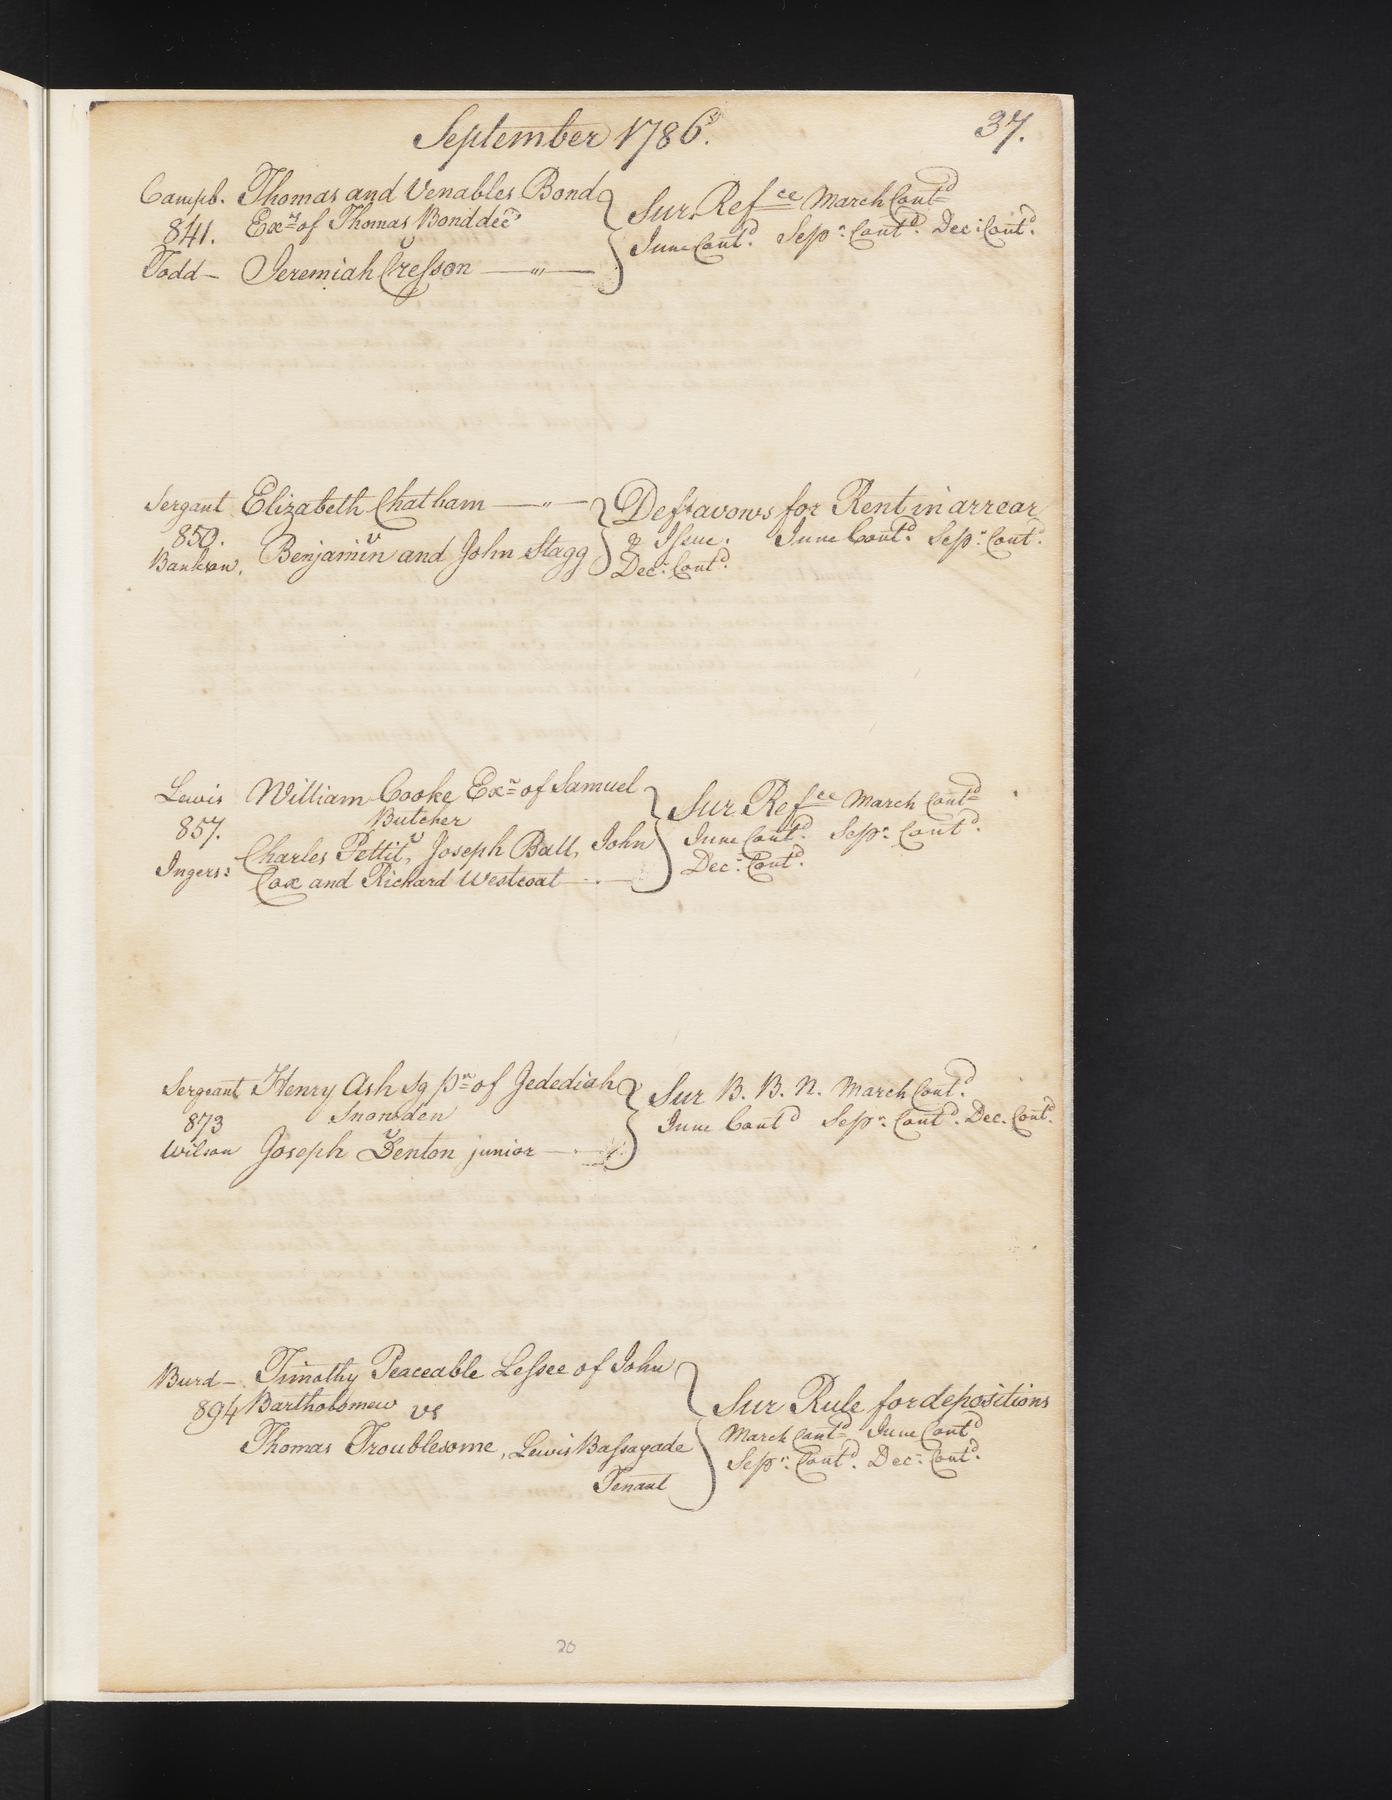 September 1786.
37.
Campb. Thomas and Venables Bond
841. Exrs of Thomas Bond decd
v
Todd — Jeremiah Cresson — " —
Sur. Refce March Contd
June Contd. Sepr. Contd. Dec: Contd.
Sergant Elizabeth Chatham — " —
850. v
Bankson. Benjamin and John Stagg
Deft avows for Rent in arrear
& Issue. June Contd Sepr. Contd.
Dec. Contd.
Lewis William Cooke Exr of Samuel
857. Butcher
v
Ingers: Charles Pettit, Joseph Ball, John
Cox and Richard Westcoat
Sur Refce March Contd
June Contd. Sepr. Contd.
Dec. Contd.
Sergeant Henry Ash Sg Pr of Jedediah
873 Snowden
v
Wilson Joseph Denton junior
Sur B. B. N. March Contd.
June Contd Sepr. Contd. Dec. Contd.
Burd — Timothy Peaceable Lessee of John
894 Bartholomew vs
Thomas Troublesome, Lewis Bassagade
Tenant
Sur Rule for depositions
March Contd June Contd
Sepr. Contd. Dec. Contd.
20